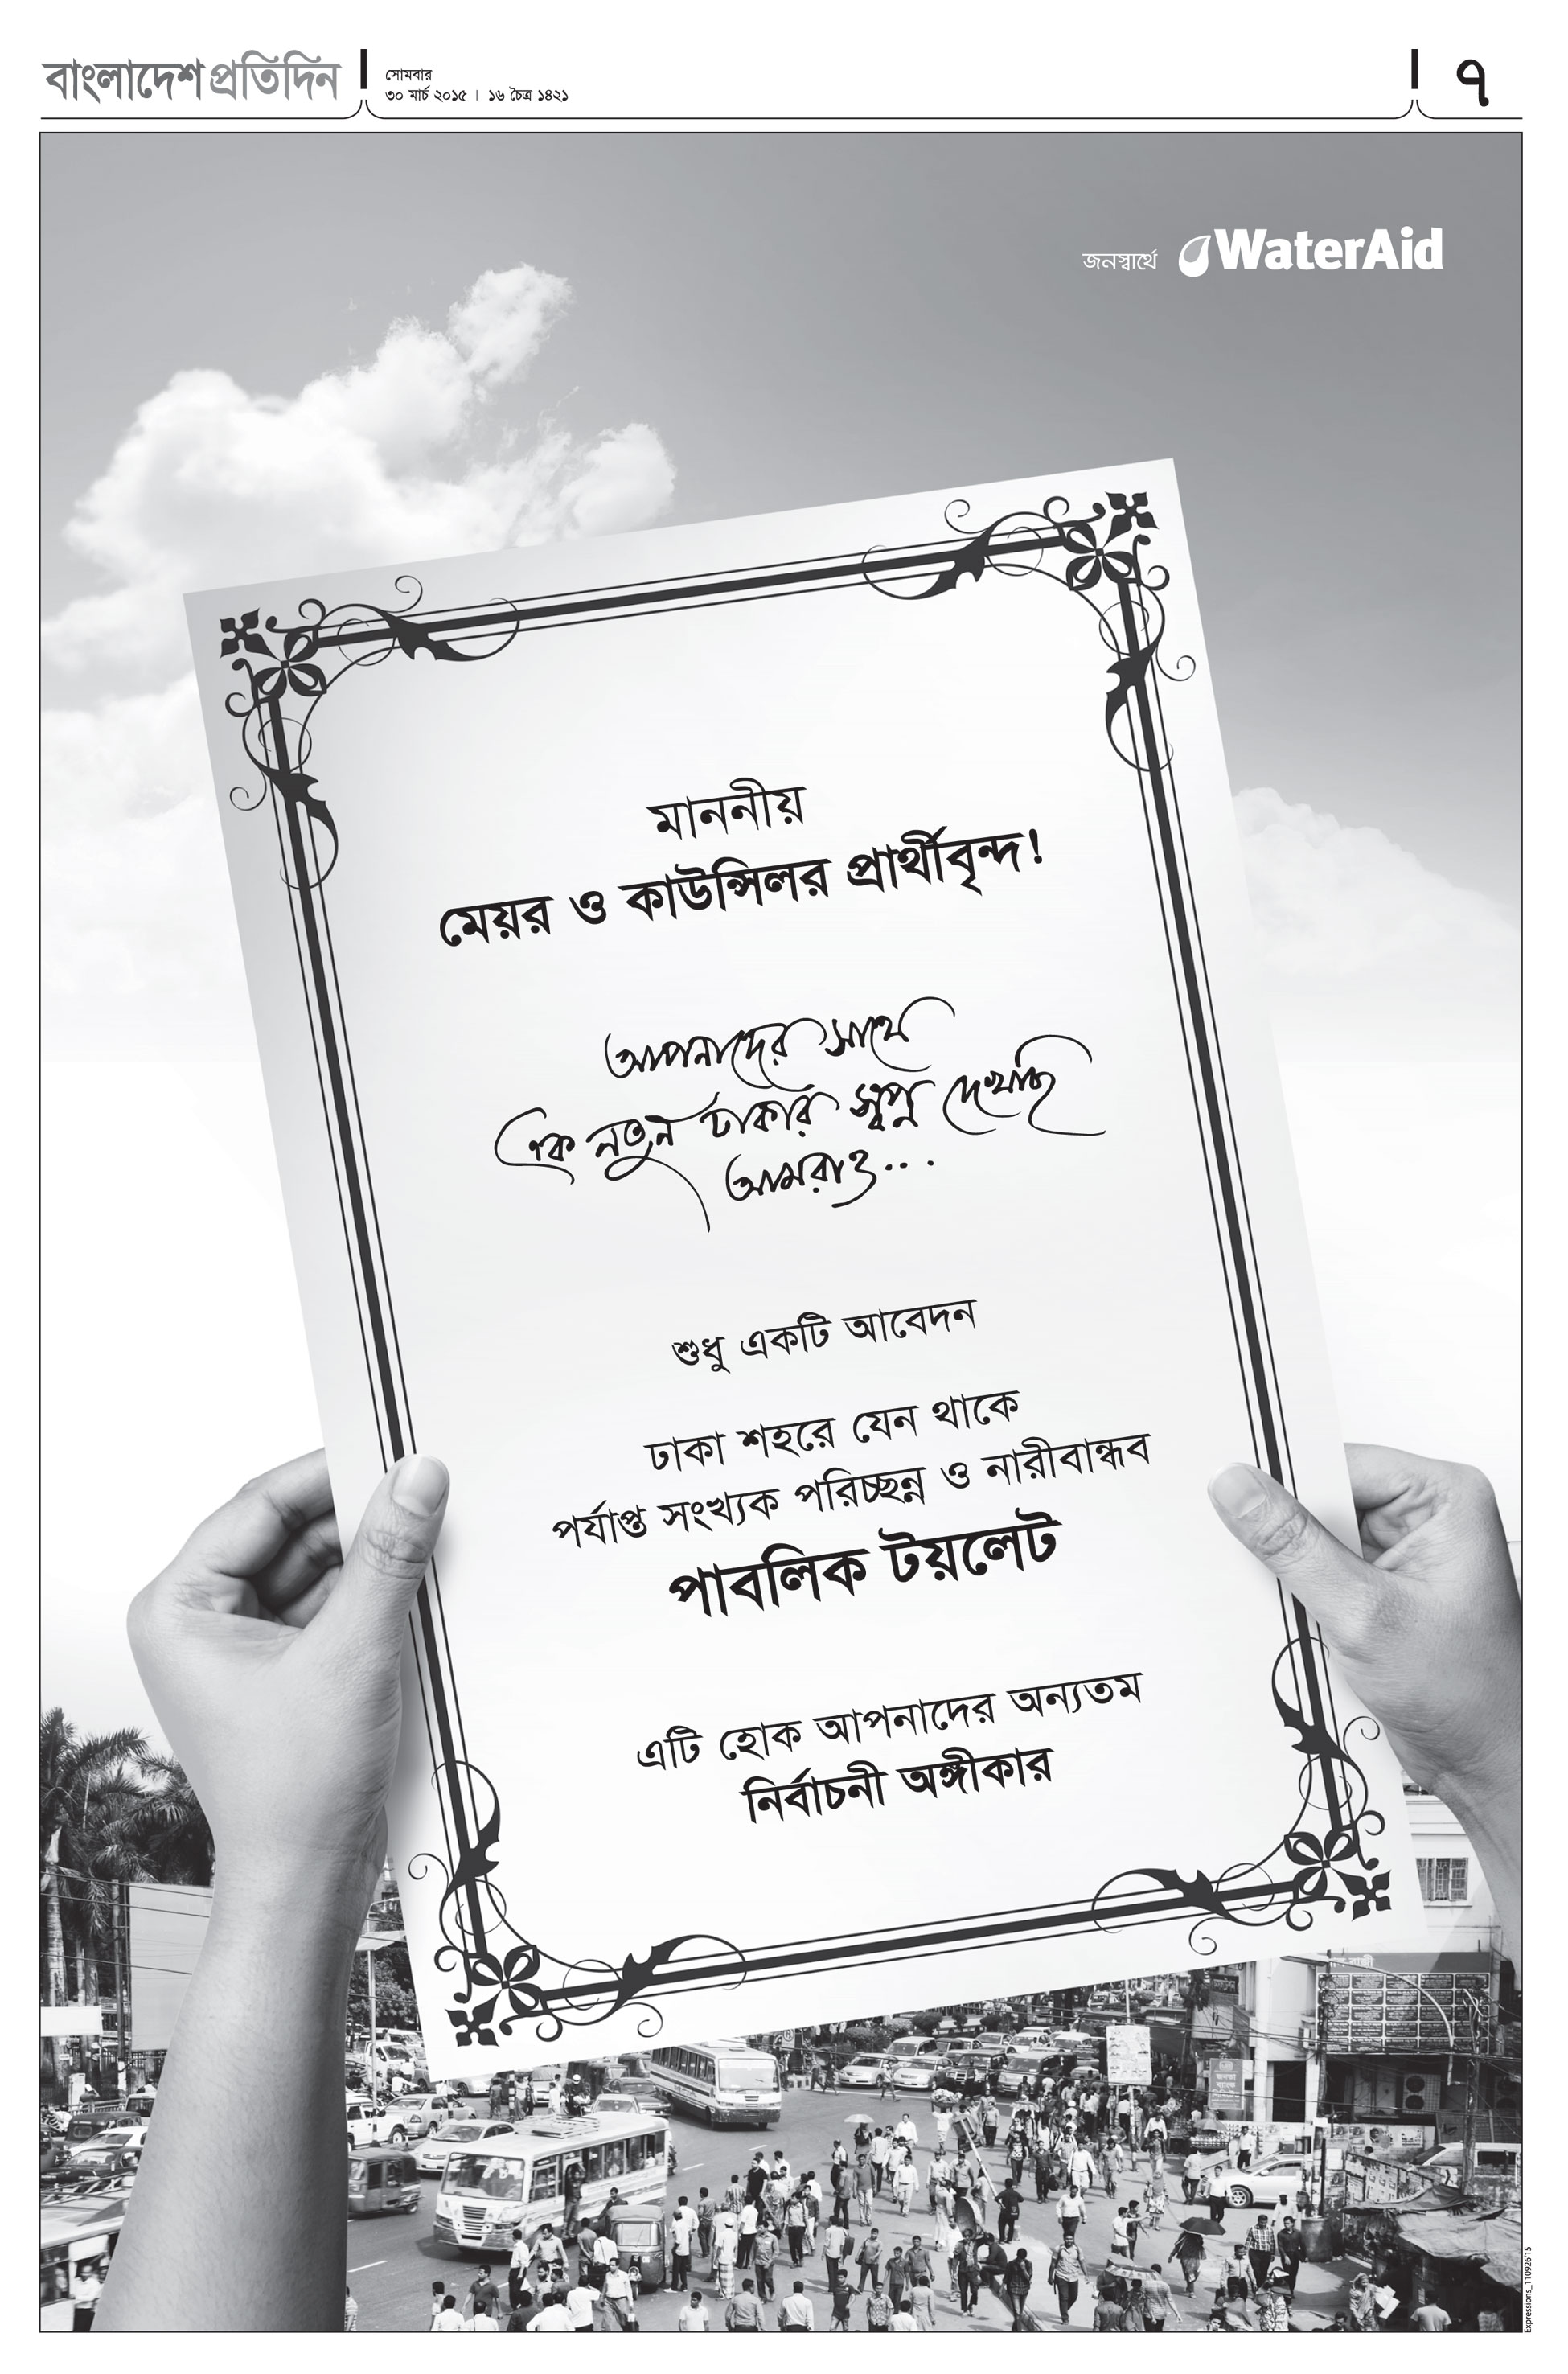 বাংলাদেশ প্রতিদিন
সোমবার
৩০ মার্চ ২০১৫ । ১৬ চৈত্র ১৪২১
৭
জনস্বার্থে WaterAid
মাননীয়
মেয়র ও কাউন্সিলর প্রার্থীবৃন্দ!
আপনাদের সাথে
এক নতুন ঢাকার স্বপ্ন দেখছি
আমরাও...
শুধু একটি আবেদন
ঢাকা শহরে যেন থাকে
পর্যাপ্ত সংখ্যক পরিচ্ছন্ন ও নারীবান্ধব
পাবলিক টয়লেট
এটি হোক আপনাদের অন্যতম
নির্বাচনী অঙ্গীকার
Expressions_110926'15